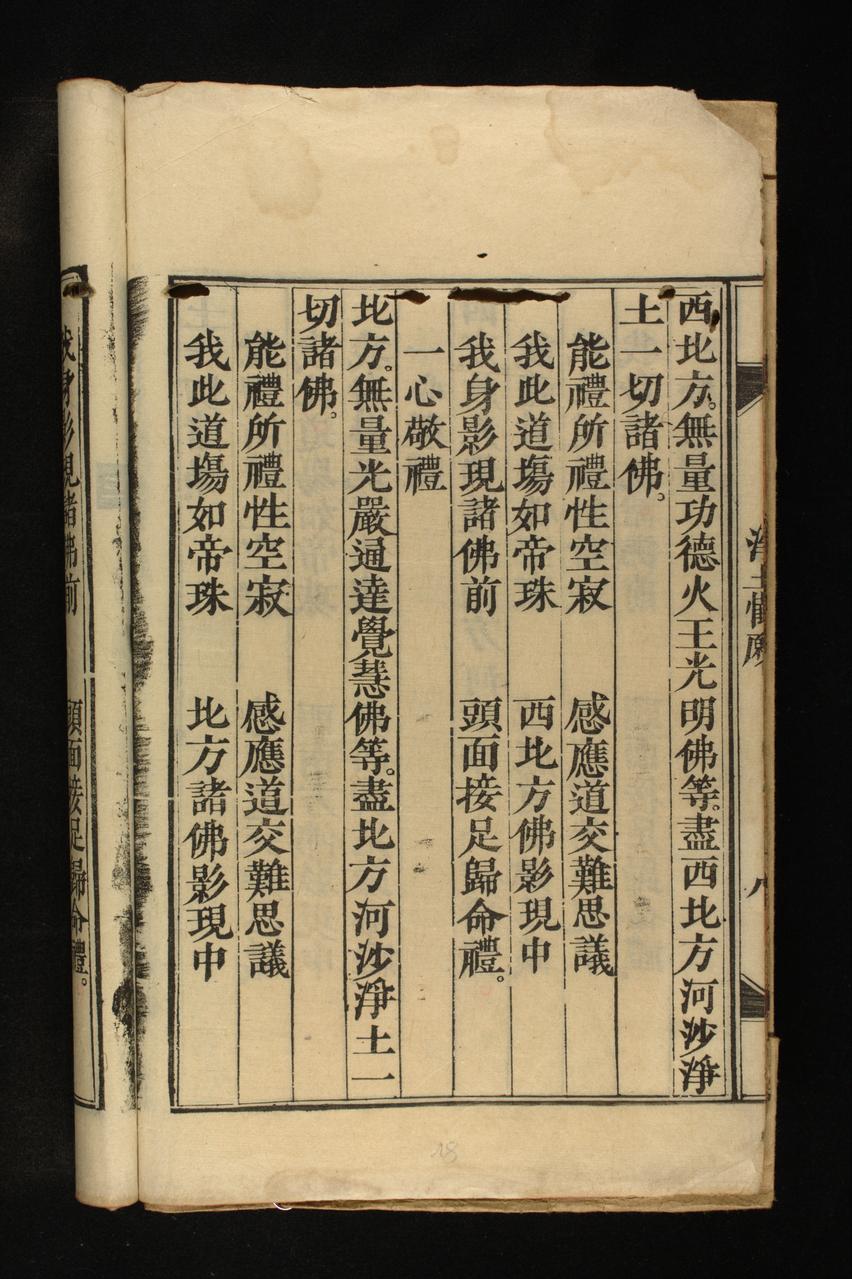 西北方。無量功德火王光明佛等。盡西北方河沙淨
土一切諸佛。
能禮所禮性空寂　感應道交難思議
我此道塲如帝珠　西北方佛影現中
我身影現諸佛前　頭面接足歸命禮。
一心敬禮
北方。無量光嚴通達覺慧佛等。盡北方河沙淨土一
切諸佛。
能禮所禮性空寂　感應道交難思議
我此道塲如帝珠　北方諸佛影現中
我身影現諸佛前　頭面接足歸命禮。
18